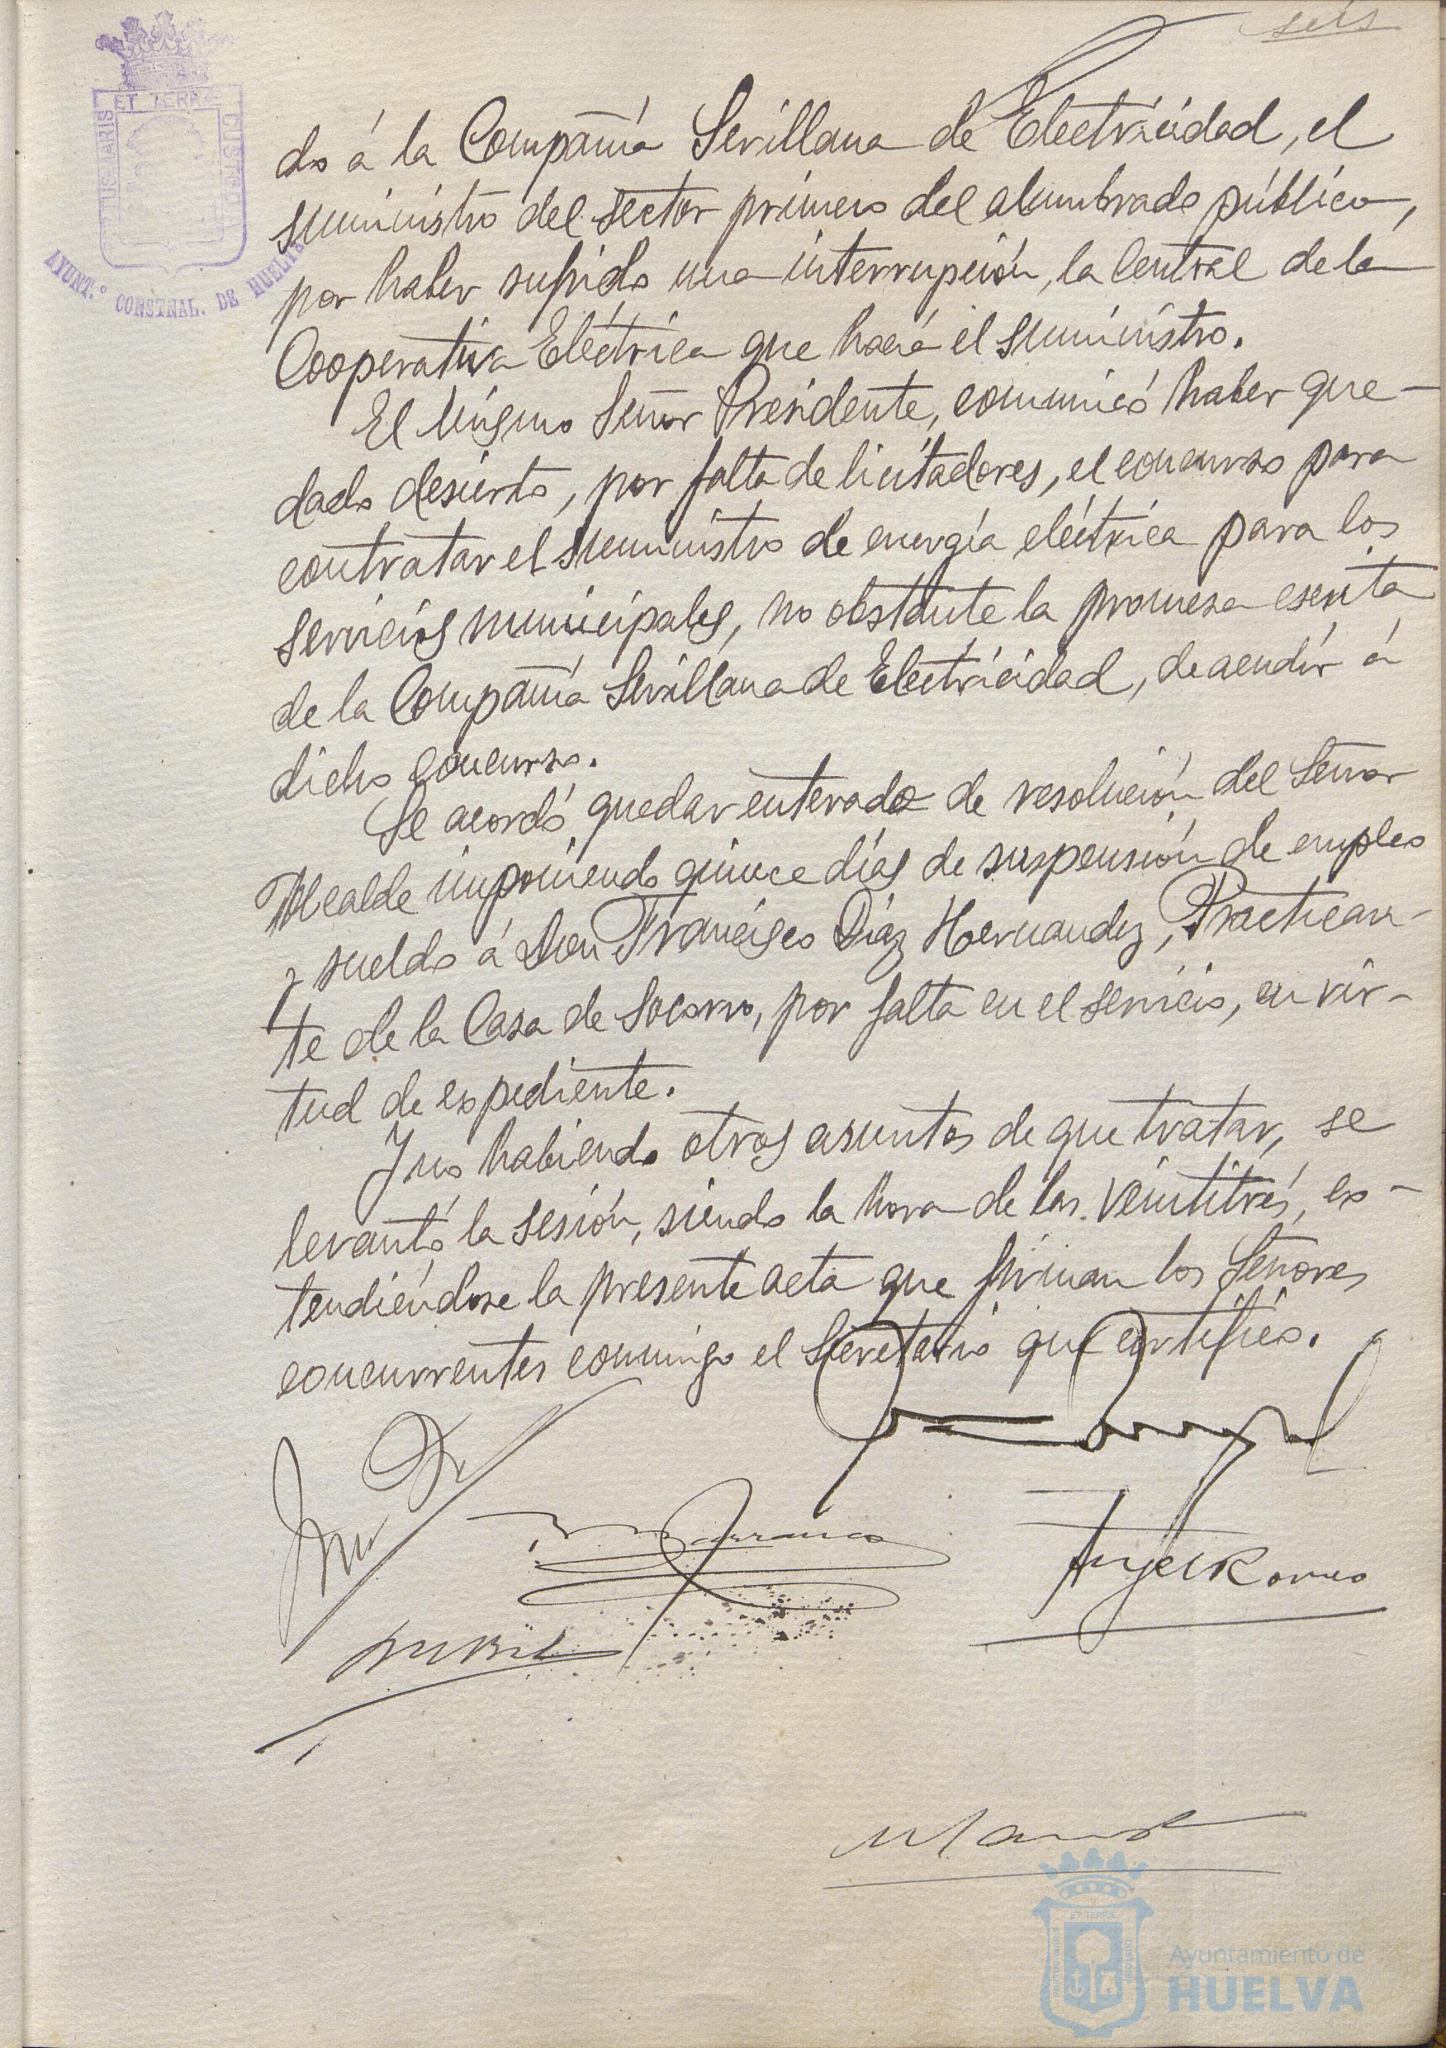 seis
do á la Compañía Sevillana de Electricidad, el
suministro del sector primero del alumbrado público,
por haber sufrido una interrupción, la Central de la
Cooperativa Eléctrica que hacía el suministro.
El mismo Señor Presidente, comunicó haber que-
dado desierto, por falta de licitadores, el concurso para
contratar el suministro de energía eléctrica para los
servicios municipales, no obstante la promesa escrita
de la Compañía Sevillana de Electricidad, de acudir á
dicho concurso.
Se acordó quedar enterado de resolución del Señor
Alcalde imponiendo quince días de suspensión de empleo
y sueldo á Don Francisco Díaz Hernandez, Practican-
te de la Casa de Socorro, por falta en el servicio, en vir-
tud de expediente.
Y no habiendo otros asuntos de que tratar, se
levantó la sesión, siendo la hora de las veintitrés, ex-
tendiéndose la presente acta que firman los Señores
concurrentes conmigo el Secretario que certifico.
AYUNT.º CONSTNAL. DE HUELVA
PORTUS MARIS ET TERRÆ CUSTODIA
Barranco
Angel Romeo
Ayuntamiento de
HUELVA